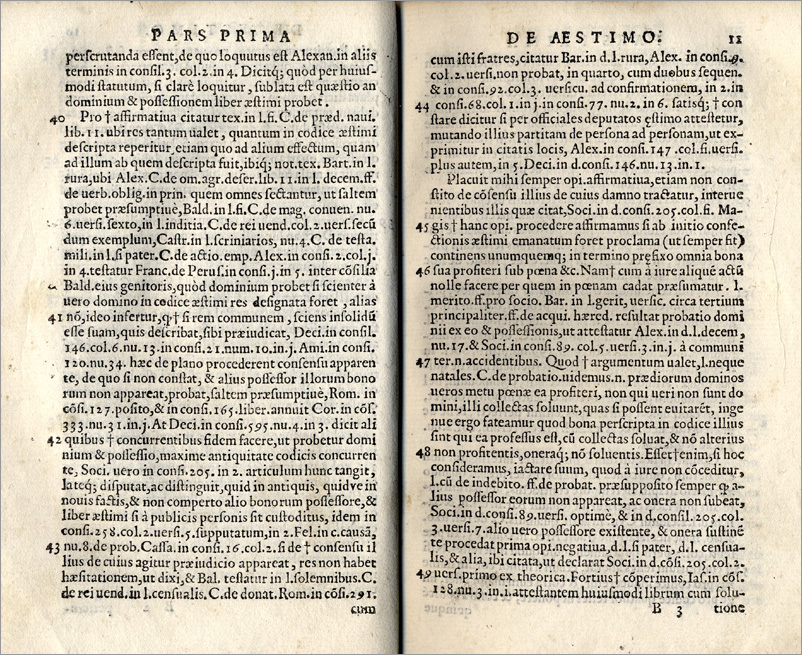 PARS PRIMA
perscrutanda essent, de quo loquutus est Alexan. in aliis
terminis in consil. 3. col. 2. in 4. Dicitq; quòd per huius-
modi statutum, si clarè loquitur, sublata est quæstio an
dominium & possessionem liber æstimi probet.
40 Pro † affirmatiua citatur tex. in l. fi. C. de præd. naui.
lib. 11. ubi res tantum ualet, quantum in codice æstimi
descripta reperitur, etiam quo ad alium effectum, quam
ad illum ab quem descripta fuit, ibiq; not. tex. Bart. in l.
rura, ubi Alex. C. de om. agr. deser. lib. 11. in l. decem. ff.
de uerb. oblig. in prin. quem omnes sectantur, ut saltem
probet præsumptiuè, Bald. in l. fi. C. de mag. conuen. nu.
6. uersi. sexto, in l. inditia. C. de rei uend. col. 2. uers. secũ
dum exemplum, Castr. in l. scriniarios, nu. 4. C. de testa.
mili. in l. si pater. C. de actio. emp. Alex. in consi. 2. col. j.
in 4. testatur Franc. de Perus. in consi. j. in 5. inter cõsilia
Bald. eius genitoris, quòd dominium probet si scienter à
uero domino in codice æstimi res designata foret, alias
41 nõ, ideo infertur, ꝙ † si rem communem, sciens insolidũ
esse suam, quis describat, sibi præiudicat, Deci. in consil.
146. col. 6. nu. 13. in consi. 21. num. 10. in j. Ami. in consi.
120. nu. 34. hæc de plano procederent consensu apparen
te, de quo si non constat, & alius possessor illorum bono
rum non appareat, probat, saltem præsumptiuè, Rom. in
cõsi. 127. posito, & in consi. 165. liber. annuit Cor. in cõs.
333. nu. 31. in. j. At Deci. in consi. 595. nu. 4. in 3. dicit ali
42 quibus † concurrentibus fidem facere, ut probetur domi
nium & possessio, maxime antiquitate codicis concurren
te, Soci. uero in consi. 205. in 2. articulum hunc tangit,
lateq; disputat, ac distinguit, quid in antiquis, quidve in
nouis factis, & non comperto alio bonorum possessore, &
liber æstimi si à publicis personis sit custoditus, idem in
consi. 258. col. 2. uersi. 5. supputatum, in 2. Fel. in c. causã,
43 nu. 8. de prob. Cassa. in consi. 16. col. 2. si de † consensu il
lius de cuius agitur præiudicio appareat, res non habet
hæsitationem, ut dixi, & Bal. testatur in l. solemnibus. C.
de rei uend. in l. censualis. C. de donat. Rom. in cõsi. 291.
cum
DE AESTIMO. 11
cum isti fratres, citatur Bar. in d. l. rura, Alex. in consi. 9.
col. 2. uersi. non probat, in quarto, cum duobus sequen.
& in consi. 92. col. 3. uersicu. ad confirmationem, in 2. in
44 consi. 68. col. 1. in j. in consi. 77. nu. 2. in 6. satisq; † con
stare dicitur si per officiales deputatos ęstimo attestetur,
mutando illius partitam de persona ad personam, ut ex-
primitur in citatis locis, Alex. in consi. 147. col. fi. uersi.
plus autem, in 5. Deci. in d. consi. 146. nu. 13. in. 1.
Placuit mihi semper opi. affirmatiua, etiam non con-
stito de cõsensu illius de cuius damno tractatur, interue
nientibus illis quæ citat, Soci. in d. consi. 205. col. fi. Ma-
45 gis † hanc opi. procedere affirmamus si ab initio confe-
ctionis æstimi emanatum foret proclama (ut semper fit)
continens unumquemq; in termino pręfixo omnia bona
46 sua profiteri sub pœna &c. Nam † cum à iure aliquē actũ
nolle facere per quem in pœnam cadat præsumatur. l.
merito. ff. pro socio. Bar. in l. gerit, uersic. circa tertium
principaliter. ff. de acqui. hæred. resultat probatio domi
nii ex eo & possessionis, ut attestatur Alex. in d. l. decem,
nu. 17. & Soci. in consi. 89. col. 5. uersi. 3. in. j. à communi
47 ter. n. accidentibus. Quod † argumentum ualet, l. neque
natales. C. de probatio. uidemus. n. prædiorum dominos
ueros metu pœnæ ea profiteri, non qui ueri non sunt do
mini, illi collectas soluunt, quas si possent euitarēt, inge
nue ergo fateamur quod bona perscripta in codice illius
sint qui ea professus est, cũ collectas soluat, & nõ alterius
48 non profitentis, oneraq; nõ soluentis. Esset † enim, si hoc
consideramus, iactare suum, quod à iure non cõceditur,
l. cũ de indebito. ff. de probat. præsupposito semper ꝙ a-
lius possessor eorum non appareat, ac onera non subeat,
Soci. in d. consi. 89. uersi. optimè, & in d. consil. 205. col.
3. uersi. 7. alio uero possessore existente, & onera sustinē
te procedat prima opi. negatiua, d. l. si pater, d. l. censua-
lis, & alia, ibi citata, ut declarat Soci. in d. cõsi. 205. col. 2.
49 uers. primo ex theorica. Fortius † cõperimus, Ias. in cõs.
128. nu. 3. in. 1. attestantem huiusmodi librum cum solu-
B 3 tione